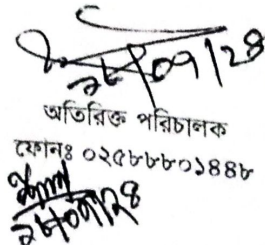 ২৮/০৭/২৪
অতিরিক্ত পরিচালক
ফোনঃ ০২৫৮৮৮০১৪৪৮
২৮/০৭/২৪